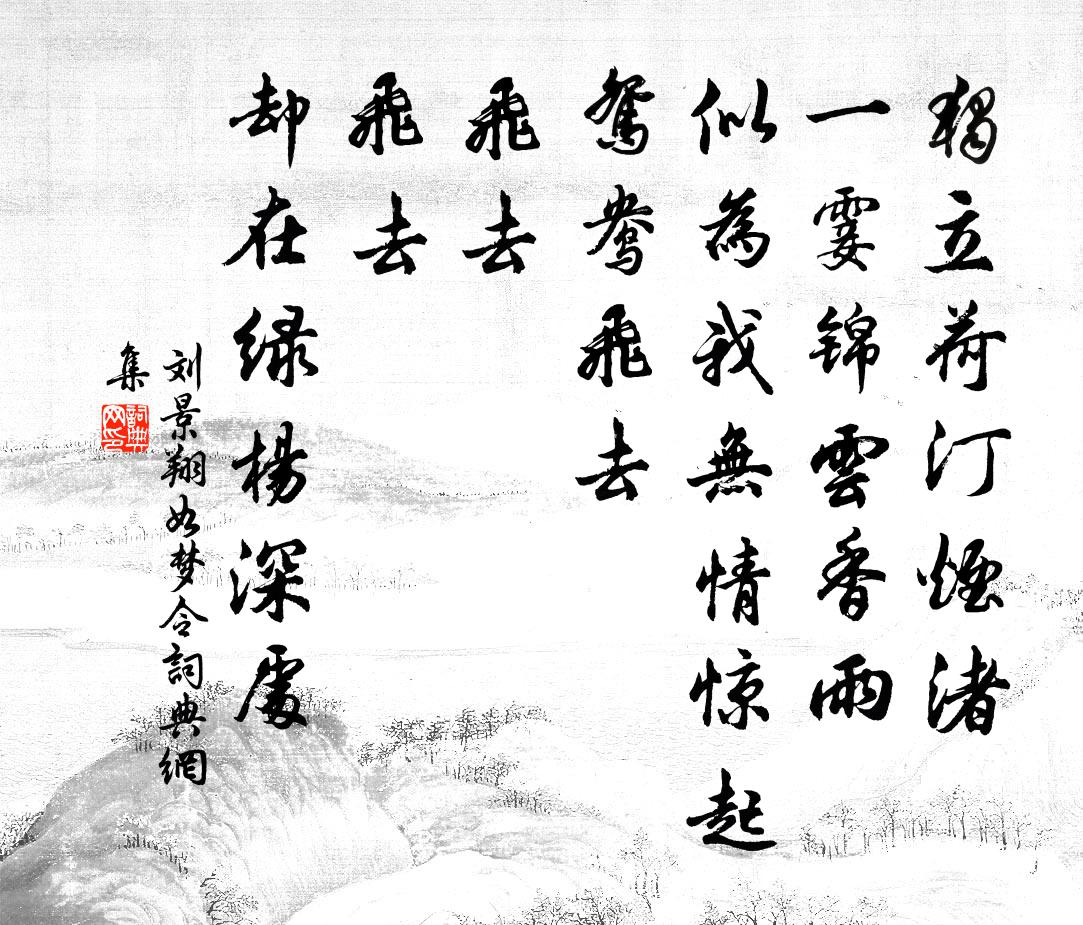 獨立荷汀煙渚
一霎錦雲香雨
似為我無情惊起
鴛鴦飛去
飛去
飛去
却在綠楊深處
刘景翔如梦令詞典網
集
詞典网印